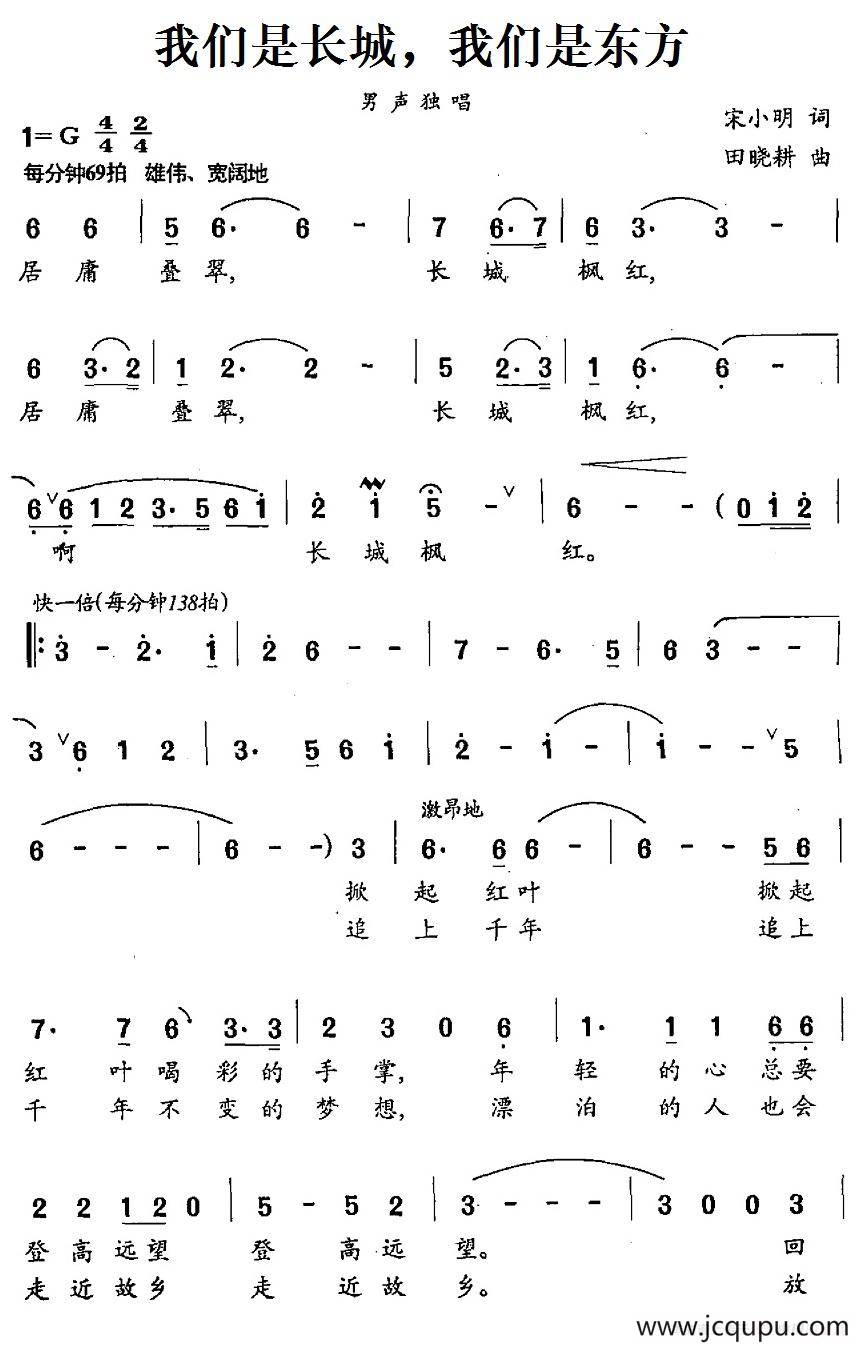 我们是长城，我们是东方
男声独唱
1=G 4/4 2/4
宋小明 词
田晓耕 曲
每分钟69拍 雄伟、宽阔地
6 6 | 5 6· 6 - | 7 6·7 | 6 3· 3 - |
居庸叠翠, 长城枫红,
6 3·2 | 1 2· 2 - | 5 2·3 | 1 6· 6 - |
居庸叠翠, 长城枫红,
6 ∨ 6 1 2 3·5 6 1 | 2 1 5 - ∨ | 6 - - (0 1 2 |
啊 长城枫红。
快一倍(每分钟138拍)
‖: 3 - 2· 1 | 2 6 - - | 7 - 6· 5 | 6 3 - - |
3 ∨ 6 1 2 | 3· 5 6 1 | 2 - 1 - | 1 - - ∨ 5 |
激昂地
6 - - - | 6 - -) 3 | 6· 6 6 - | 6 - - 5 6 |
掀起红叶 掀起
追上千年 追上
7· 7 6 3·3 | 2 3 0 6 | 1· 1 1 6 6 |
红叶喝彩的手掌, 年轻的心总要
千年不变的梦想, 漂泊的人也会
2 2 1 2 0 | 5 - 5 2 | 3 - - - | 3 0 0 3 |
登高远望 登高远望。 回
走近故乡 走近故乡。 放
www.jcqupu.com